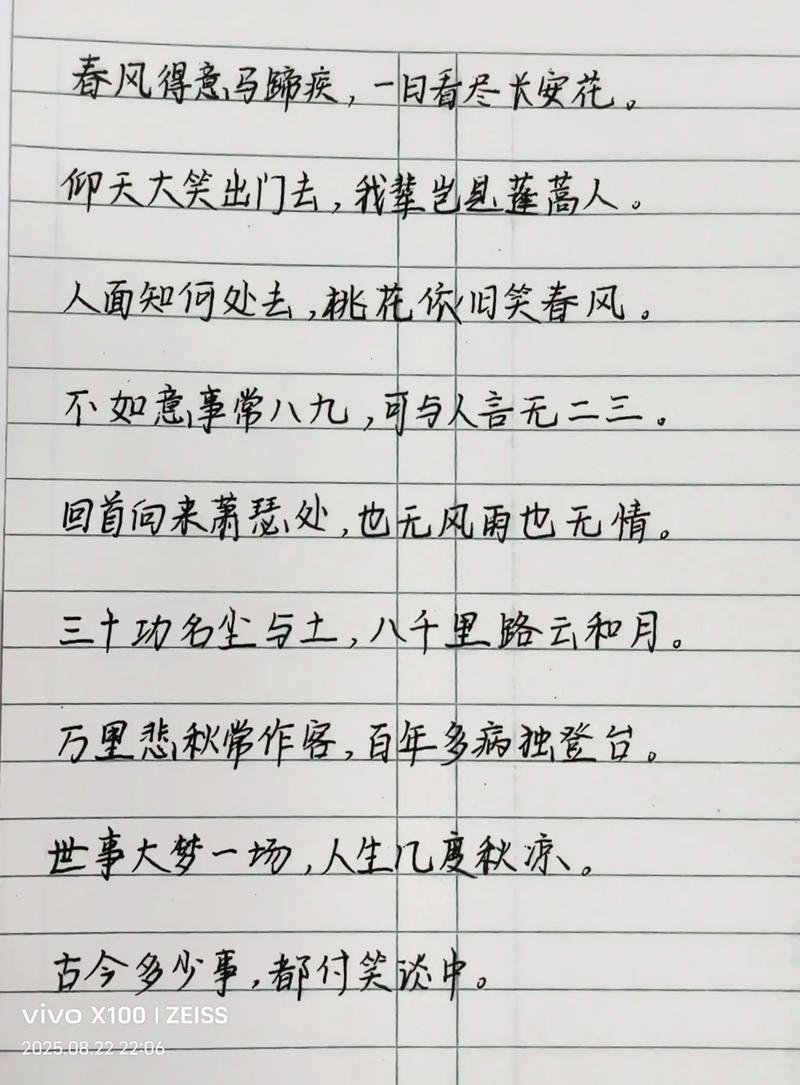 春风得意马蹄疾，一日看尽长安花。
仰天大笑出门去，我辈岂是蓬蒿人。
人面知何处去，桃花依旧笑春风。
不如意事常八九，可与人言无二三。
回首向来萧瑟处，也无风雨也无情。
三十功名尘与土，八千里路云和月。
万里悲秋常作客，百年多病独登台。
世事大梦一场，人生几度秋凉、。
古今多少事，都付笑谈中。
vivo X100 | ZEISS
2025.08.22 22:06